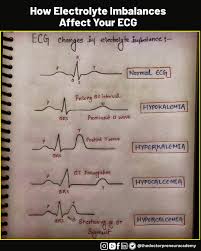 How Electrolyte Imbalances
Affect Your ECG
ECG changes in electrolyte imbalance:-
P
T
Normal ECG
QRS
Interval
Prominent U wave
HYPOKALEMIA
QRS
T wave
HYPERKALEMIA
QRS
QT Prolongation
HYPOCALCEMIA
QRS
Shortening of QT
HYPERCALCEMIA
@thedoctorpreneuracademy